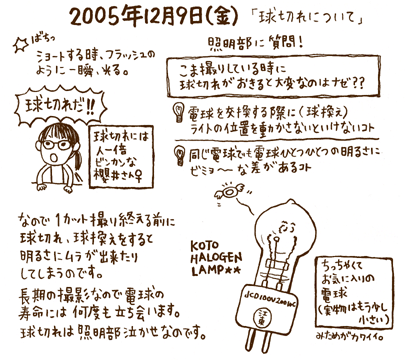 2005年12月9日(金) 「球切れについて」
ばちっ
ショートする時、フラッシュの
ように一瞬、光る。
球切れだ!!
球切れには
人一倍
ビンカンな
櫻井さん♀
照明部に質問!
こま撮りしている時に
球切れがおきると大変なのはナゼ??
電球を交換する際に(球換え)
ライトの位置を動かさないといけないコト
同じ電球でも電球ひとつひとつの明るさに
ビミョ〜な差があるコト
なので1カット撮り終える前に
球切れ、球換えをすると
明るさにムラが出来たり
してしまうのです。
長期の撮影なので電球の
寿命には何度も立ち会います。
球切れは照明部泣かせなのです。
KOTO
HALOGEN
LAMP★★
JCD100V200WC
ちっちゃくて
お気に入りの
電球
(実物はもう少し
小さい)
みためがカワイイ。